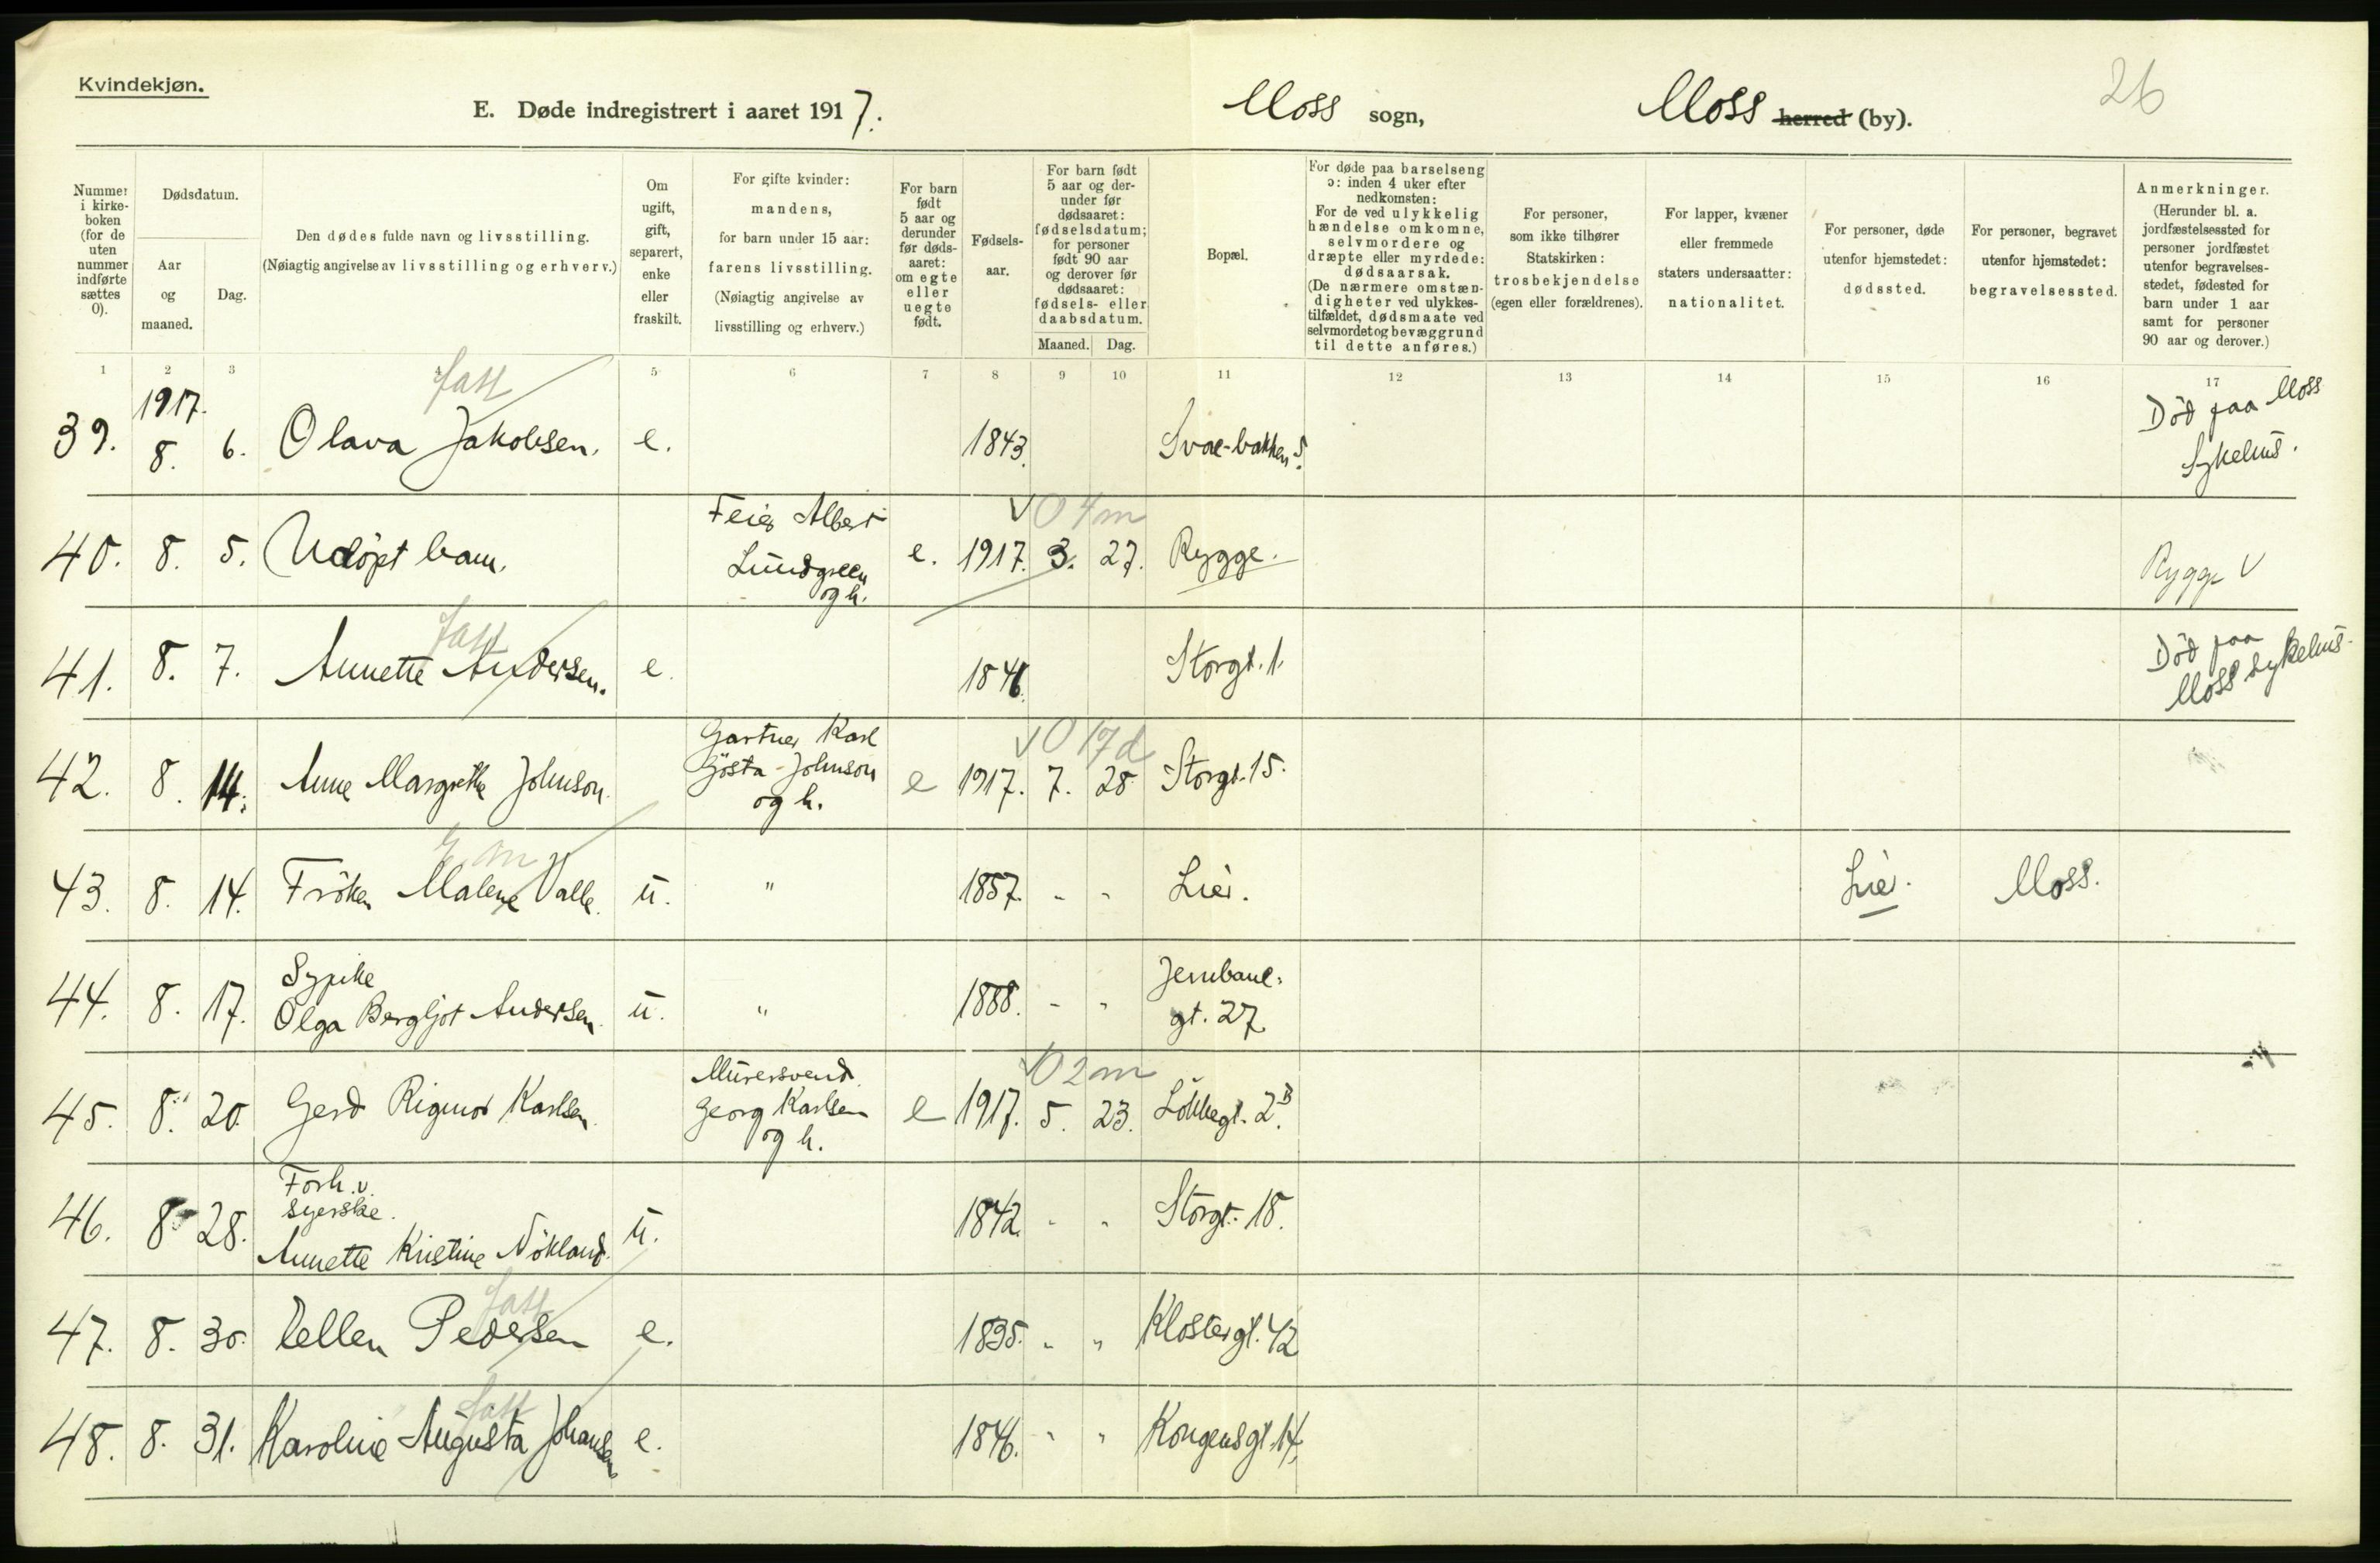 Kvindekjøn.
E. Døde indregistrert i aaret 1917.
Moss sogn,
Moss herred (by).
26
Nummer
i kirke-
boken
(for de
uten
nummer
indførte
sættes
0).
Dødsdatum.
Aar
og
maaned.
Dag.
Den dødes fulde navn og livsstilling.
(Nøiagtig angivelse av livsstilling og erhverv.)
Om
ugift,
gift,
separert,
enke
eller
fraskilt.
For gifte kvinder:
mandens,
for barn under 15 aar:
farens livsstilling.
(Nøiagtig angivelse av
livsstilling og erhverv.)
For barn
født
5 aar og
derunder
før døds-
aaret:
om egte
eller
uegte
født.
Fødsels-
aar.
For barn født
5 aar og der-
under før
dødsaaret:
fødselsdatum;
for personer
født 90 aar
og derover før
dødsaaret:
fødsels- eller
daabsdatum.
Maaned. Dag.
Bopæl.
For døde paa barselseng
ɔ: inden 4 uker efter
nedkomsten:
For de ved ulykkelig
hændelse omkomne,
selvmordere og
dræpte eller myrdede:
dødsaarsak.
(De nærmere omstæn-
digheter ved ulykkes-
tilfældet, dødsmaate ved
selvmordet og bevæggrund
til dette anføres.)
For personer,
som ikke tilhører
Statskirken:
trosbekjendelse
(egen eller forældrenes).
For lapper, kvæner
eller fremmede
staters undersaatter:
nationalitet.
For personer, døde
utenfor hjemstedet:
dødssted.
For personer, begravet
utenfor hjemstedet:
begravelsessted.
Anmerkninger.
(Herunder bl. a.
jordfæstelsessted for
personer jordfæstet
utenfor begravelses-
stedet, fødested for
barn under 1 aar
samt for personer
90 aar og derover.)
1 2 3 4 5 6 7 8 9 10 11 12 13 14 15 16 17
1917.
39. 8. 6. Olava Jakobsen. e. 1843. Svae-bakken 5. Død paa Moss
Sykehus.
Feier Albert
V 0 4 m
40. 8. 5. Udöpt barn. Lundgreen e. 1917. 3. 27. Rygge. Rygge V
og h.
41. 8. 7. Annette Andersen. e. Storgt. 1. Død paa
Moss Sykehus.
Gartner Karl
V 0 17 d
42. 8. 14. Anne Margrethe Johnson. Gösta Johnson e 1917. 7. 28. Storgt. 15.
og h.
43. 8. 14. Fröken Malene Valle. u. " 1857. " " Lier. Lier. Moss.
Sypike
Jernbane-
44. 8. 17. Olga Bergljot Andersen. u. " 1888. " " gt. 27.
Murersvend
V 0 2 m
45. 8. 20. Gerd Rigmor Karlsen. Georg Karlsen e 1917. 5. 23. Lökkegt. 2B.
og h.
Forh. v.
syerske.
46. 8. 28. Annette Kristine Nökland. u. 1842. " " Storgt. 18.
47. 8. 30. Ellen Pedersen e. 1835. " " Klostergt. 42
48. 8. 31. Karoline Augusta Johansen e. 1846. " " Kongensgt. 14.